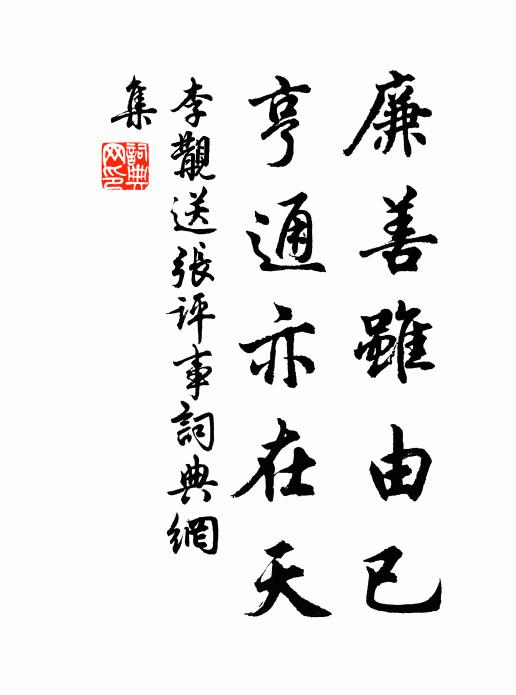 廉善雖由已
亨通亦在天
李覯送張評事詞典網
集
詞典網印